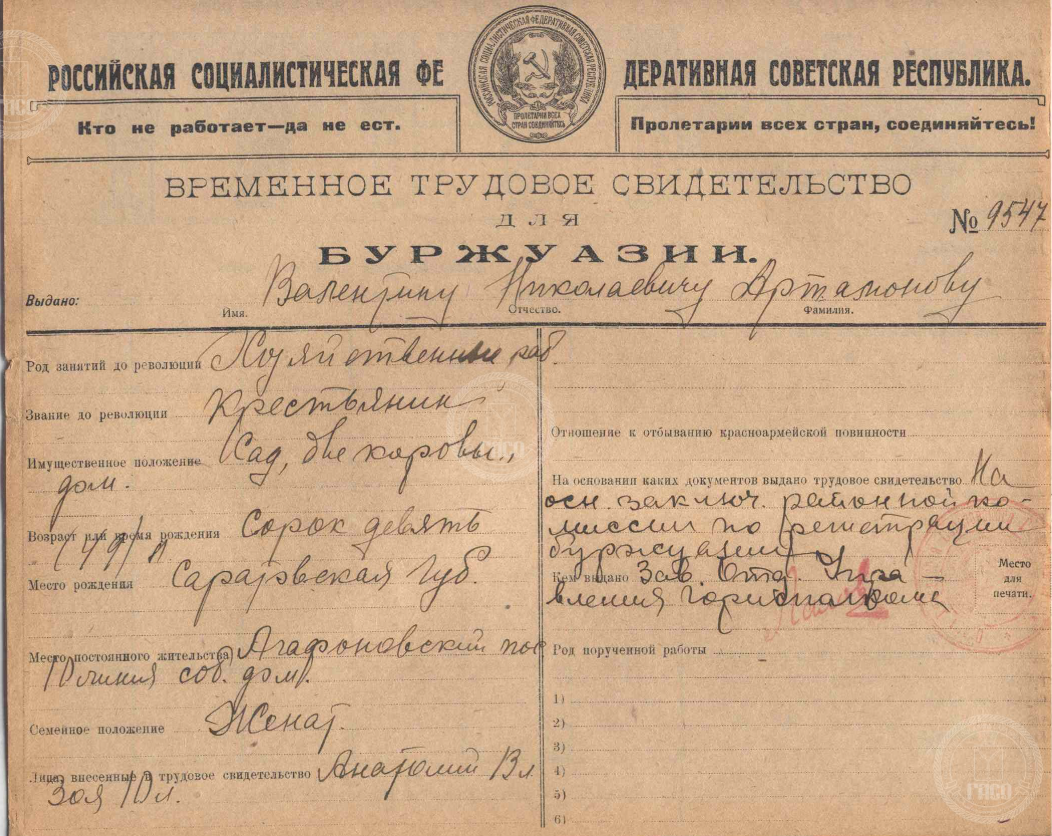 РОССИЙСКАЯ СОЦИАЛИСТИЧЕСКАЯ ФЕ ДЕРАТИВНАЯ СОВЕТСКАЯ РЕСПУБЛИКА.
РОССИЙСКАЯ СОЦИАЛИСТИЧЕСКАЯ ФЕДЕРАТИВНАЯ СОВЕТСКАЯ РЕСПУБЛИКА
ПРОЛЕТАРИИ ВСЕХ
СТРАН СОЕДИНЯЙТЕСЬ
Кто не работает—да не ест.
Пролетарии всех стран, соединяйтесь!
ВРЕМЕННОЕ ТРУДОВОЕ СВИДЕТЕЛЬСТВО
ДЛЯ
№ 9547
БУРЖУАЗИИ.
Выдано: Валентину Николаевичу Артамонову
Имя. Отчество. Фамилия.
Род занятий до революции Хозяйственные раб.
Звание до революции Крестьянин
Имущественное положение Сад, две коровы,
дом.
Возраст или время рождения Сорок девять
(49) л
Место рождения Саратовская губ.
Место постоянного жительства Агафоновский пос
10 линия соб. дом.
Семейное положение Женат.
Лица, внесенные в трудовое свидетельство Анатолий 13 л
Зоя 10 л.
Отношение к отбыванию красноармейской повинности
На основании каких документов выдано трудовое свидетельство На
осн. заключ. районной ко-
миссии по регистрации
буржуазии
Кем выдано Зав. Отд. Упра-
вления Горисполкома
Место
для
печати.
Род порученной работы
1)
2)
3)
4)
5)
6)
ГАСО